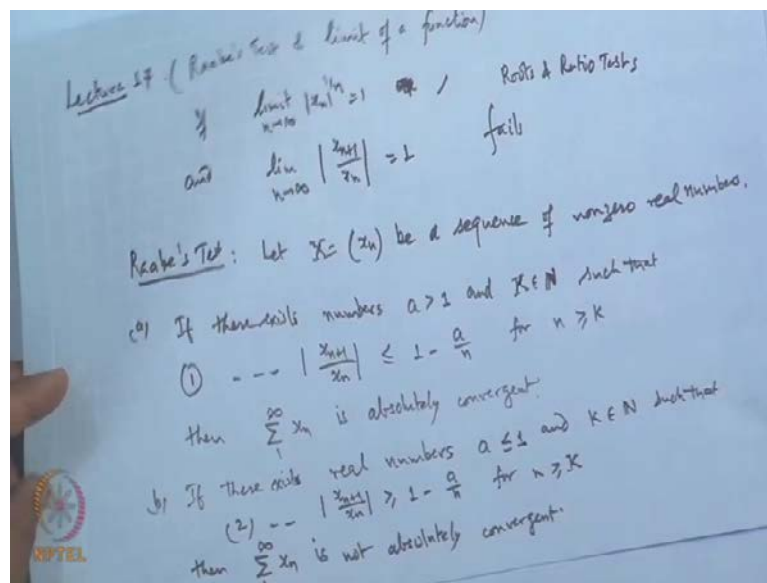 Lecture 17 (Raabe's Test & limit of a function)
If limit n→∞ |xn|^{1/n} = 1 , Roots & Ratio Tests
and lim n→∞ |xn+1/xn| = 1 fails
Raabe's Test : Let X = (xn) be a sequence of nonzero real numbers.
(a) If there exists numbers a > 1 and K ∈ N such that
① --- |xn+1/xn| ≤ 1 - a/n for n ≥ K
then ∑_{1}^{∞} xn is absolutely convergent.
b) If there exists real numbers a ≤ 1 and K ∈ N such that
(2) -- |xn+1/xn| ≥ 1 - a/n for n ≥ K
then ∑^{∞} xn is not absolutely convergent.
NPTEL